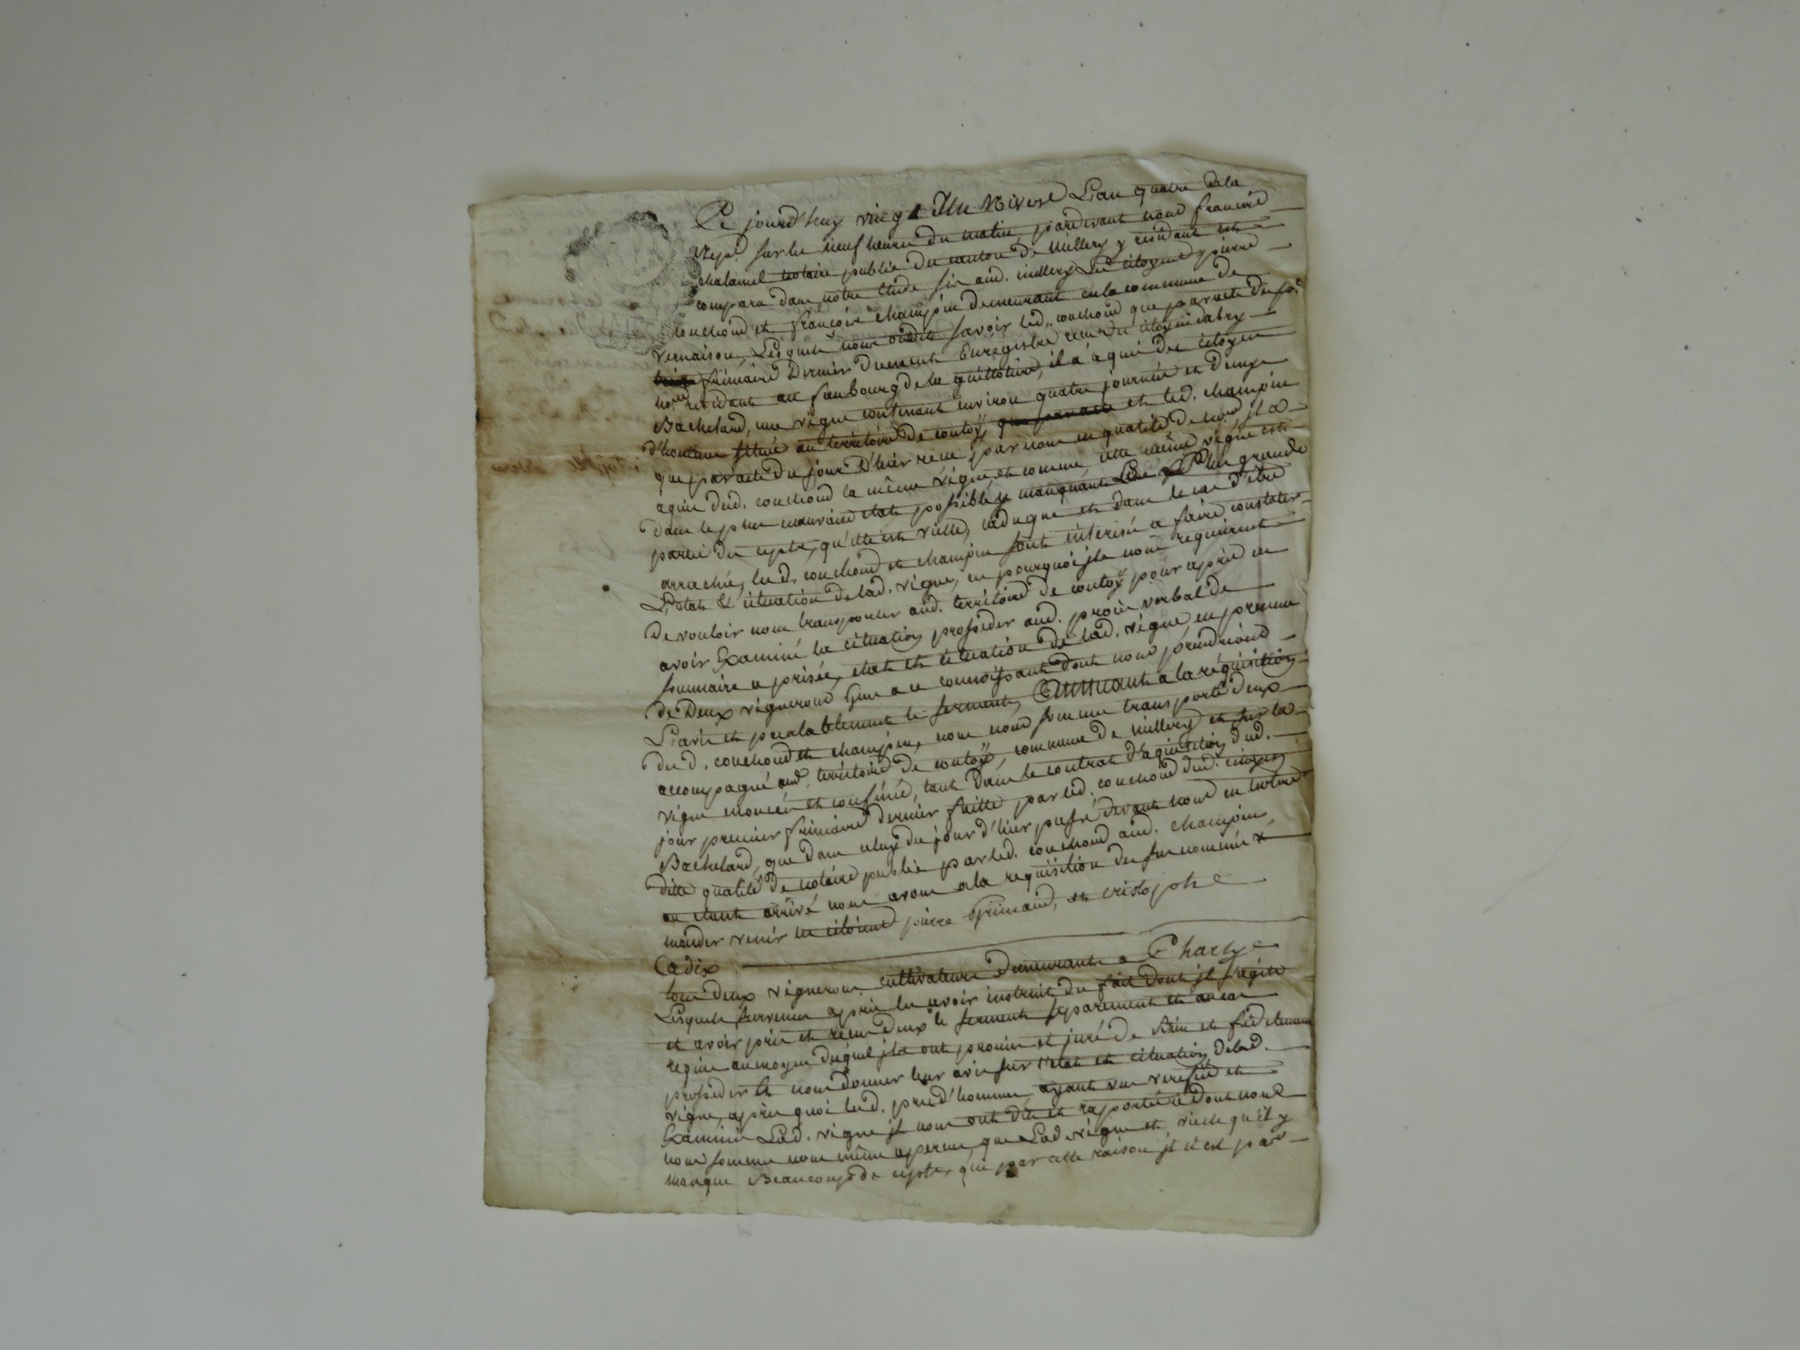 Ce jourd'huy vingt Un Nivose L'an quatre dela
Repe. sur les neuf heures du matin, pardevant nous francois
chalamel notaire public du canton de Millery y résidant est
comparu dans notre Etude sis aud. millery Les citoyens pierre
couchoud et francois champin demeurant en la commune de
vernaison, Lesquels nous ont dit savoir led. couchoud que par acte du
frimaire dernier duement Enregistré recu du citoyen dalry
nore. résidant au faubourg de la guillotiere, il a aquié du citoyen
Bachelard, une vigne contenant environ quatre journée et deux
d'hommes située au territoire de coutoy, et led. champin
que par acte du jour d'hier recu par nous en qualité de nore. il a
aquie dud. couchoud la même vigne, et comme cette même vigne est
dans le plus mauvais état possible manquant Les Plus grande
partie des ceptes, qu'elle est vielle, caduque et dans le cas d'être
arrachée, lesd. couchoud et champin sont interessé a faire constater
L'état & cituation de lad. vigne, en pourquoi ils nous requierent
de vouloir nous transporter aud. territoire de coutoy pour après en
avoir Examiné la cituation, proceder aud. procès verbal de
sommaire aprisée, état et cituation de lad. vigne en presence
de Deux vignerons Gens a ce connoissant dont nous prendrions
L'avis et prealablement le serment, Obtemperant a la réquisition
desd. couchoud et champin, nous nous sommes transporté deux
accompagné aud. territoire de coutoy, commune de millery et sur la
vigne enoncée et confinée, tant dans le contrat d'aquisition dud.
jour premier frimaire dernier faitte par led. couchoud dud. citoyen
Bachelard, que dans celuy du jour d'hier passé devant nous en notre
ditte qualité de notaire public par led. couchoud aud. champin,
ou etant arrivé nous avons a la requisition des sus nommés
mander venir les citoiens pierre Grimaud, et cristophe
Cadix
tous deux vignerons cultivateurs demeurants a Charly
Lesquels survenus après les avoir instruit du fait dont il s'agit
et avoir pris et recu deux le serment séparement et au cas
requis au moyen duquel ils ont promis et juré de bien et fidelement
proceder et nous donner leur avis sur l'état et cituation de lad.
vigne, après quoi lesd. prud'hommes ayant vue verifié et
Examiné Lad. vigne ils nous ont dit et rapporté ce dont nous
nous sommes nous même aperçu, que Lad. vigne est vielle qu'il y
manque Beaucoup de cepte, que par cette raison il n'est pas